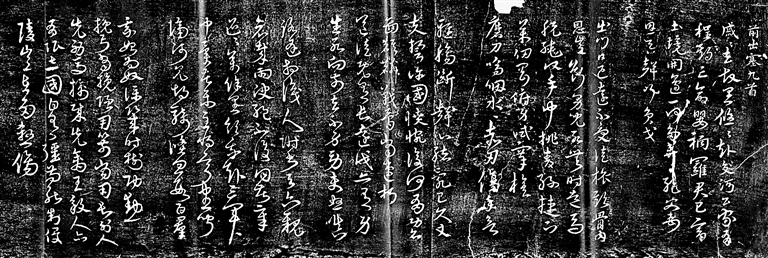 前出塞九首
戚戚去故里悠悠赴交河公家有
程期亡命嬰禍羅君已富
土境開邊一何多棄絕父母
恩吞聲行負戈
出門日已遠不受徒旅欺骨肉
恩豈斷男兒死無時走馬
脫轡頭手中挑青絲捷下
萬仞岡俯身試搴旗
磨刀嗚咽水水赤刃傷手欲
輕腸斷聲心緒亂已久丈
夫誓許國憤惋復何有功名
圖麒麟戰骨當速朽
送徒既有長遠戍亦有身
生死向前去不勞吏怒嗔
路逢相識人附書與六親
哀哉兩決絕不復同苦辛
迢迢萬里餘領我赴三軍軍
中異苦樂主將寧盡聞
隔河見胡騎倏忽數百群
我始為奴僕幾時樹功勳
挽弓當挽強用箭當用長射人
先射馬擒賊先擒王殺人亦
有限立國自有疆苟能制侵
陵豈在多殺傷